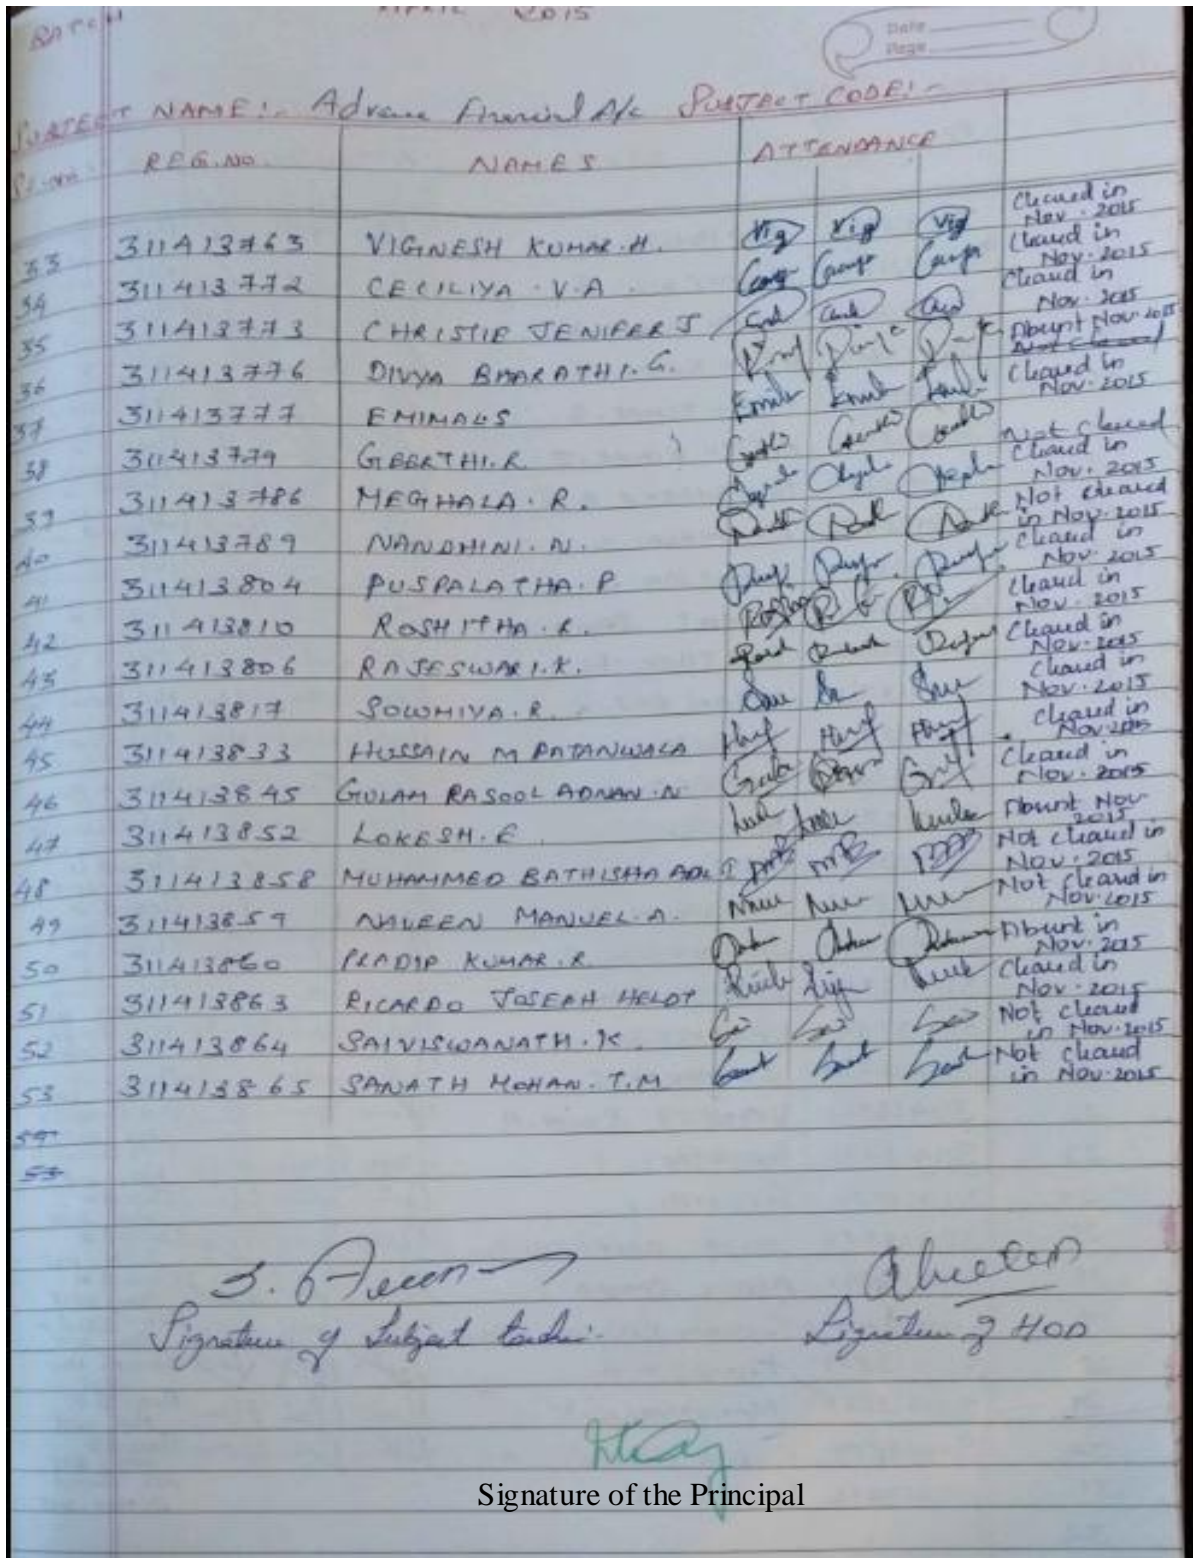 BATCH APRIL 2015
Date
Page
SUBJECT NAME:- Advance Financial A/c SUBJECT CODE:-
REG.NO. NAMES ATTENDANCE
33 311413763 VIGNESH KUMAR.H. Vig Vig Vig Cleared in Nov. 2015
34 311413772 CECILIYA.V.A. Cleared in Nov. 2015
35 311413773 CHRISTIE JENIFER J Cleared in Nov. 2015
36 311413776 DIVYA BHARATHI.G. Absent Nov 2015 Not Cleared
37 311413777 EMIMAL S Cleared in Nov. 2015
38 311413779 GEERTHI.R Not Cleared
39 311413786 MEGHALA.R. Cleared in Nov. 2015
40 311413789 NANDHINI.N. Not cleared in Nov. 2015
41 311413804 PUSPALATHA.P Cleared in Nov. 2015
42 311413810 ROSHITHA.R. Cleared in Nov. 2015
43 311413806 RAJESWARI.K. Cleared in Nov. 2015
44 311413817 SOWMIYA.R. Cleared in Nov. 2015
45 311413833 HUSSAIN M PATANWALA Cleared in Nov 2015
46 311413845 GULAM RASOOL ADNAN.N Cleared in Nov. 2015
47 311413852 LOKESH.E Absent Nov 2015
48 311413858 MUHAMMED BATHISHA Not cleared in Nov. 2015
49 311413859 NAVEEN MANUEL.A. Not cleared in Nov. 2015
50 311413860 PRADIP KUMAR.R. Absent in Nov. 2015
51 311413863 RICARDO JOSEPH HELDT Cleared in Nov. 2015
52 311413864 SAIVISWANATH.K Not cleared in Nov. 2015
53 311413865 SANATH MOHAN.T.M Not cleared in Nov. 2015
54
55
Signature of Subject teacher Signature of HOD
Signature of the Principal